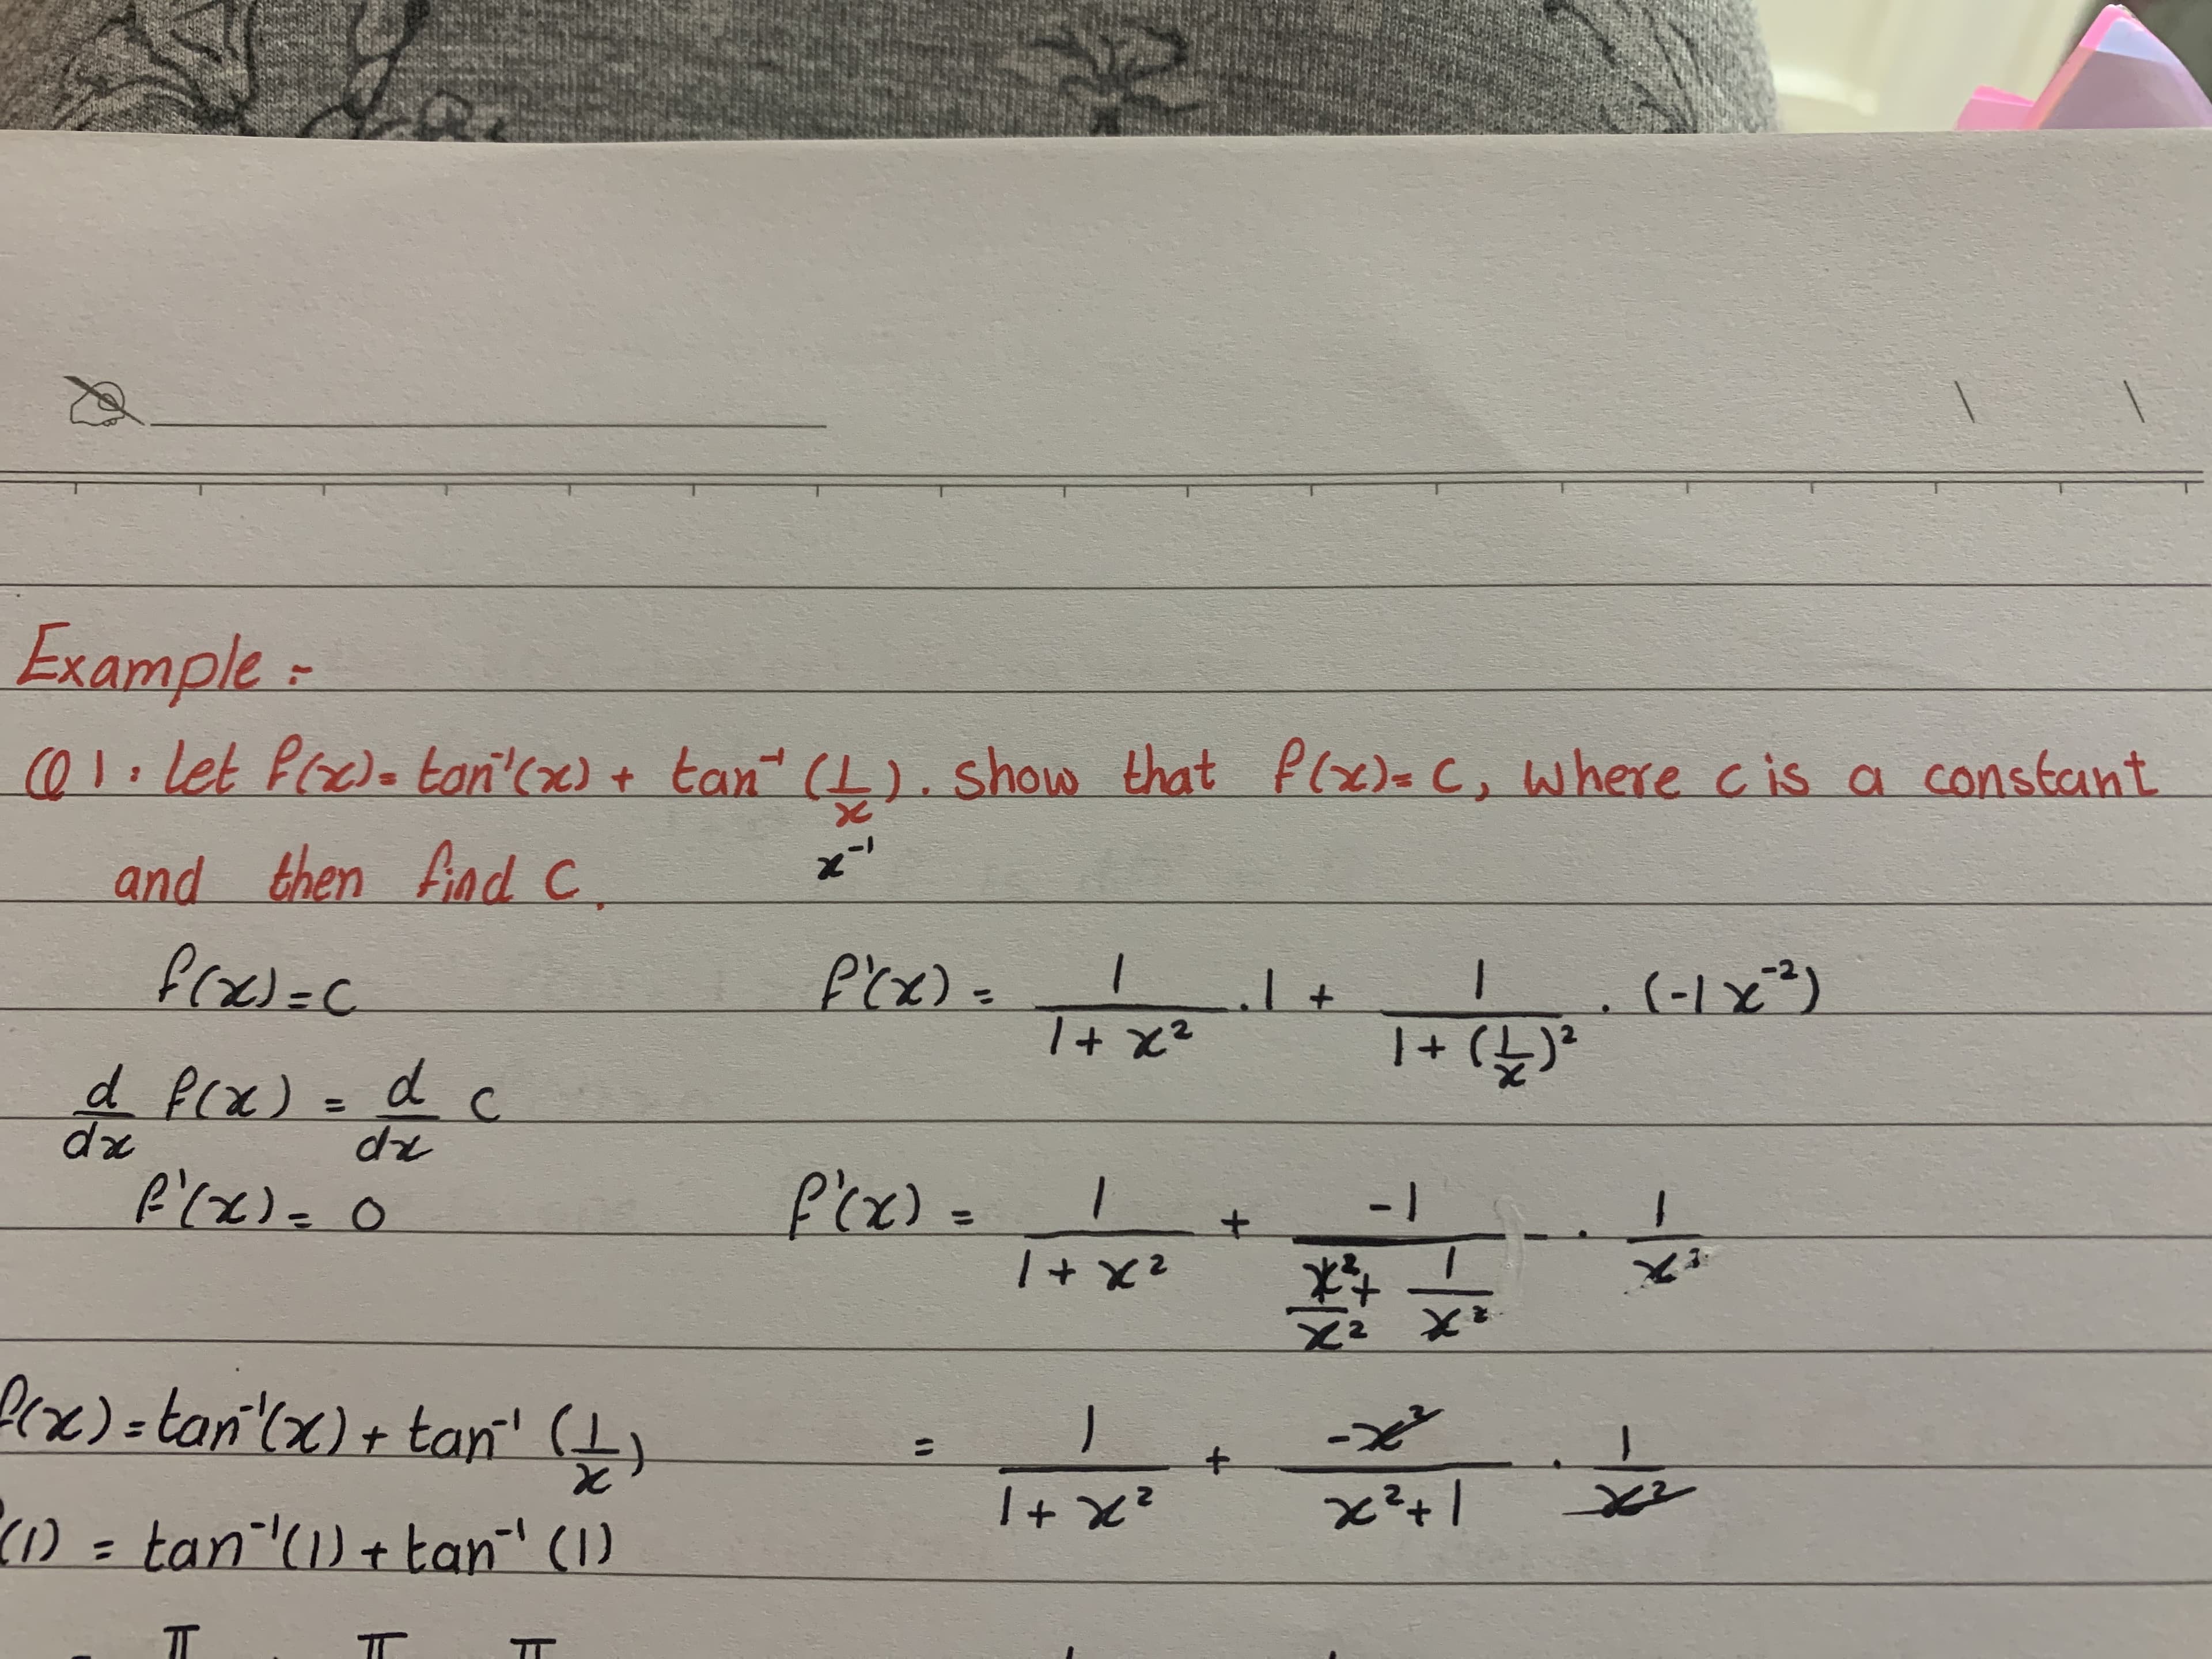 Example :-
Q1. let f(x)= tan⁻¹(x) + tan⁻¹ (1/x). show that f(x)= c, where c is a constant
and then find c.
x⁻¹
f(x) = c
f'(x) = 1/(1 + x²) . 1 + 1/(1 + (1/x)²) . (-1 x⁻²)
d/dx f(x) = d/dx c
f'(x) = 0
f'(x) = 1/(1 + x²) + -1/(x²/x² + 1/x²) . 1/x²
f(x) = tan⁻¹(x) + tan⁻¹ (1/x)
= 1/(1 + x²) + -x²/(x² + 1) . 1/x²
(1) = tan⁻¹(1) + tan⁻¹ (1)
π π π